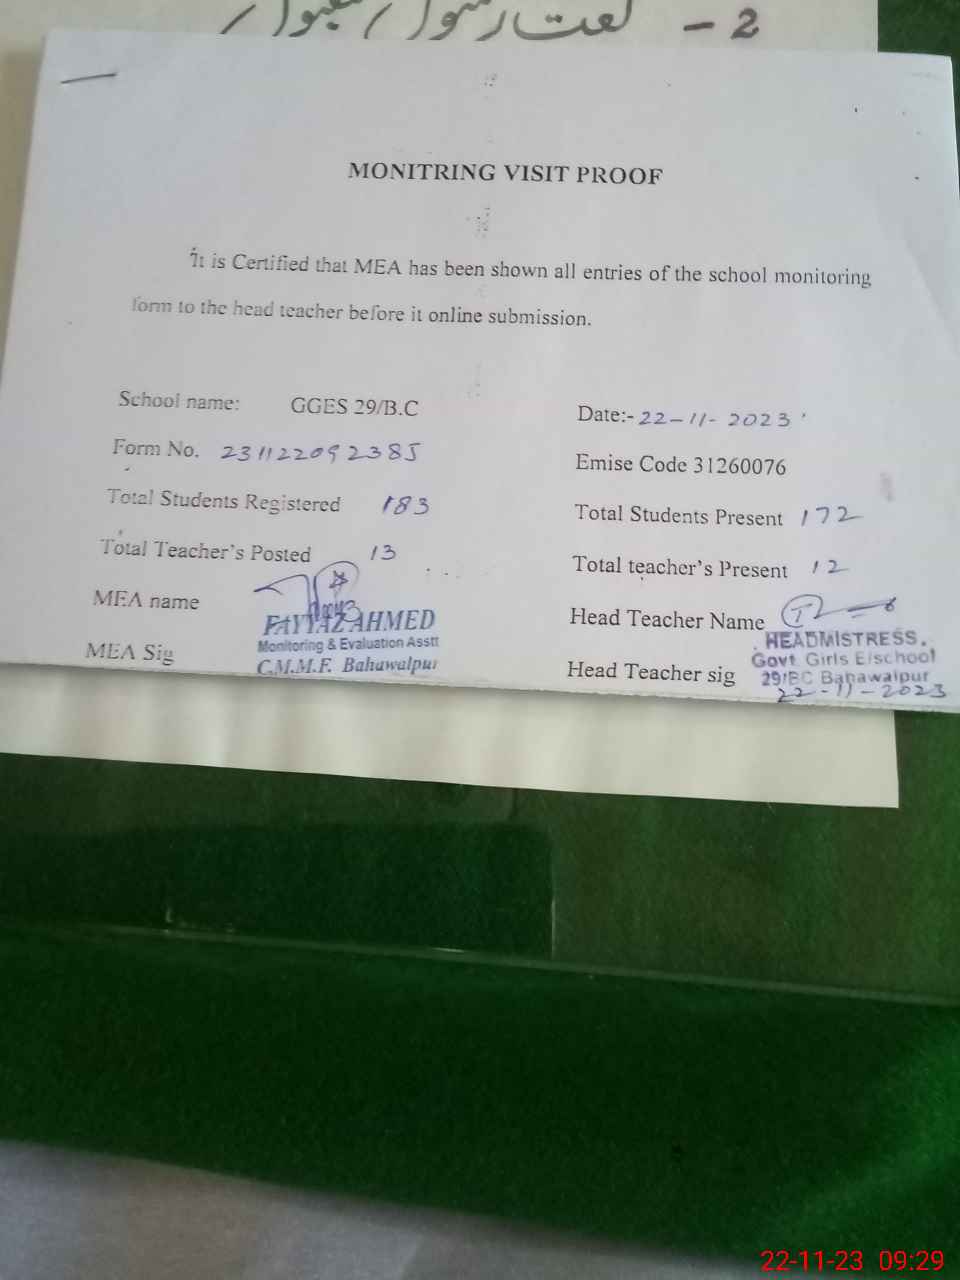 2 - نعت رسول مقبول /
MONITRING VISIT PROOF
It is Certified that MEA has been shown all entries of the school monitoring
form to the head teacher before it online submission.
School name: GGES 29/B.C
Date:- 22-11-2023
Form No. 231122092385
Emise Code 31260076
Total Students Registered 183
Total Students Present 172
Total Teacher's Posted 13
Total teacher's Present 12
MEA name
Head Teacher Name
FAYYAZ AHMED
HEADMISTRESS.
Monitoring & Evaluation Asstt
Govt Girls E/school
MEA Sig
C.M.M.F. Bahawalpur
Head Teacher sig
29/BC Bahawalpur
22-11-2023
22-11-23 09:29